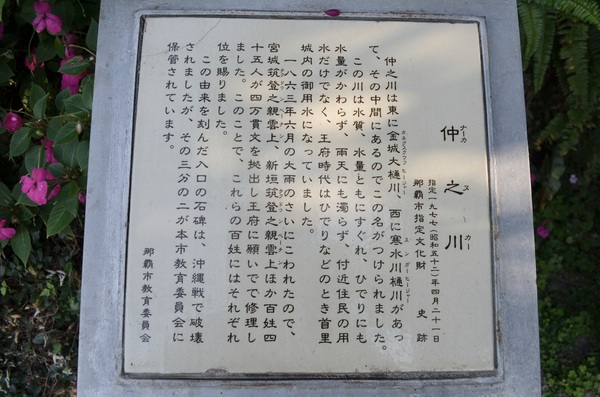 仲之川
ナーカ ヌ カー
那覇市指定文化財 史跡
指定一九七七(昭和五十二)年四月二十一日
仲之川は東に金城大樋川、西に寒水川樋川があっ
て、その中間にあるのでこの名がつけられました。
この川は水質、水量ともにすぐれ、ひでりにも
水量がかわらず、雨天にも濁らず、付近住民の用
水だけでなく、王府時代はひでりなどのとき首里
城内の御用水になっていました。
一八六三年六月の大雨のさいにこわれたので、
宮城筑登之親雲上、新垣筑登之親雲上ほか百姓四
十五人が四万貫文を拠出し王府に願いでて修理し
ました。このことで、これらの百姓にはそれぞれ
位を賜りました。
この由来を刻んだ入口の石碑は、沖縄戦で破壊
されましたが、その三分の二が本市教育委員会に
保管されています。
那覇市教育委員会